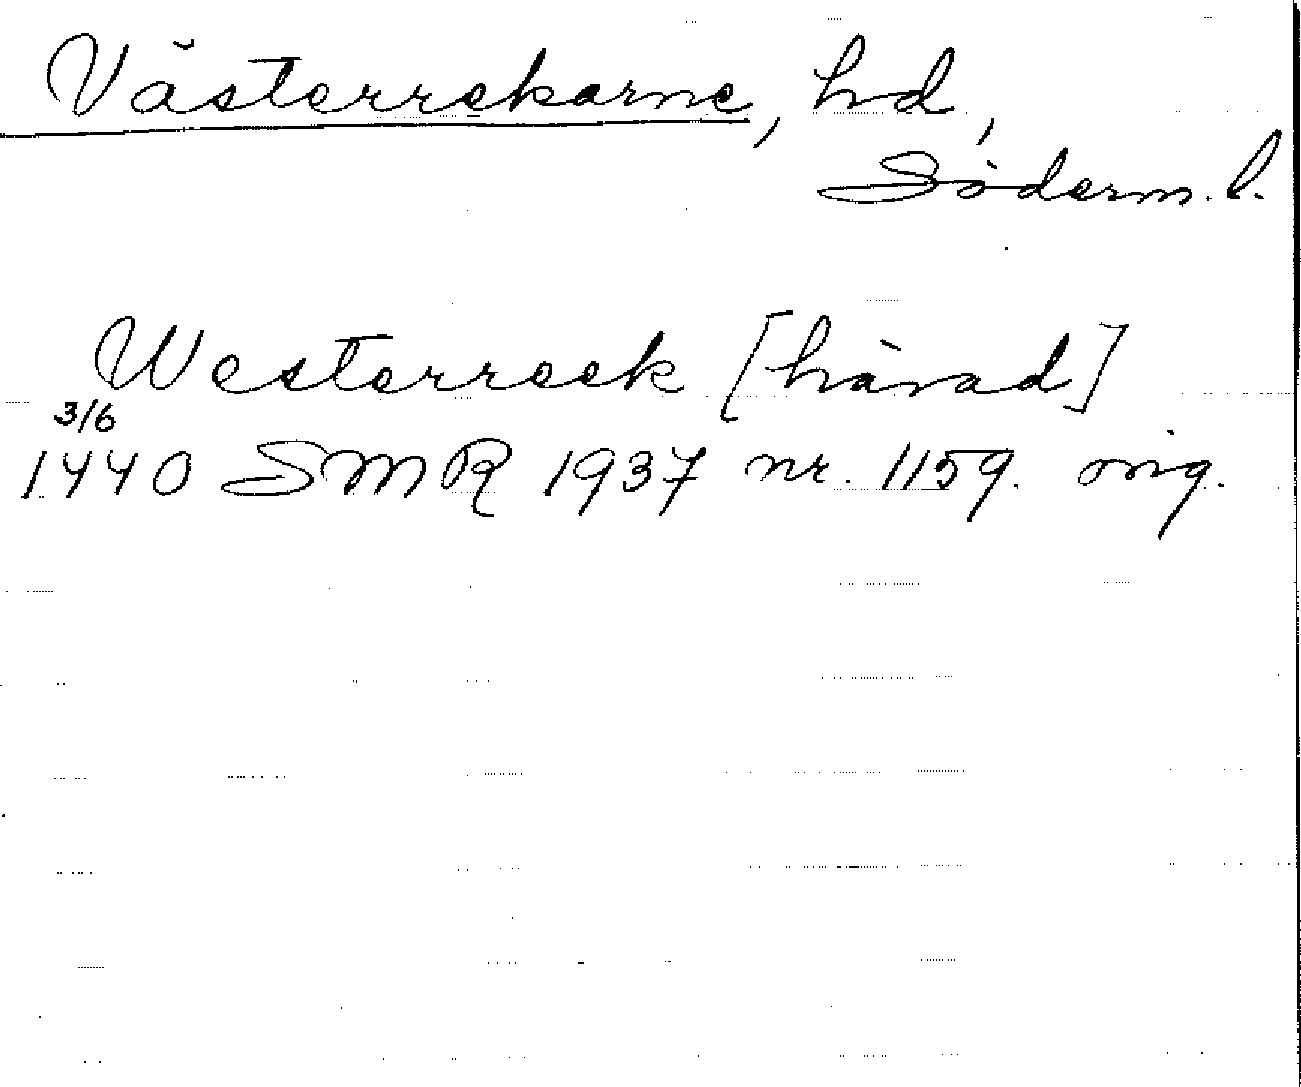 Västerrekarne, hd,
Söderm. l.
Westerreek [härad]
3/6
1440 SMR 1937 nr. 1159. orig.